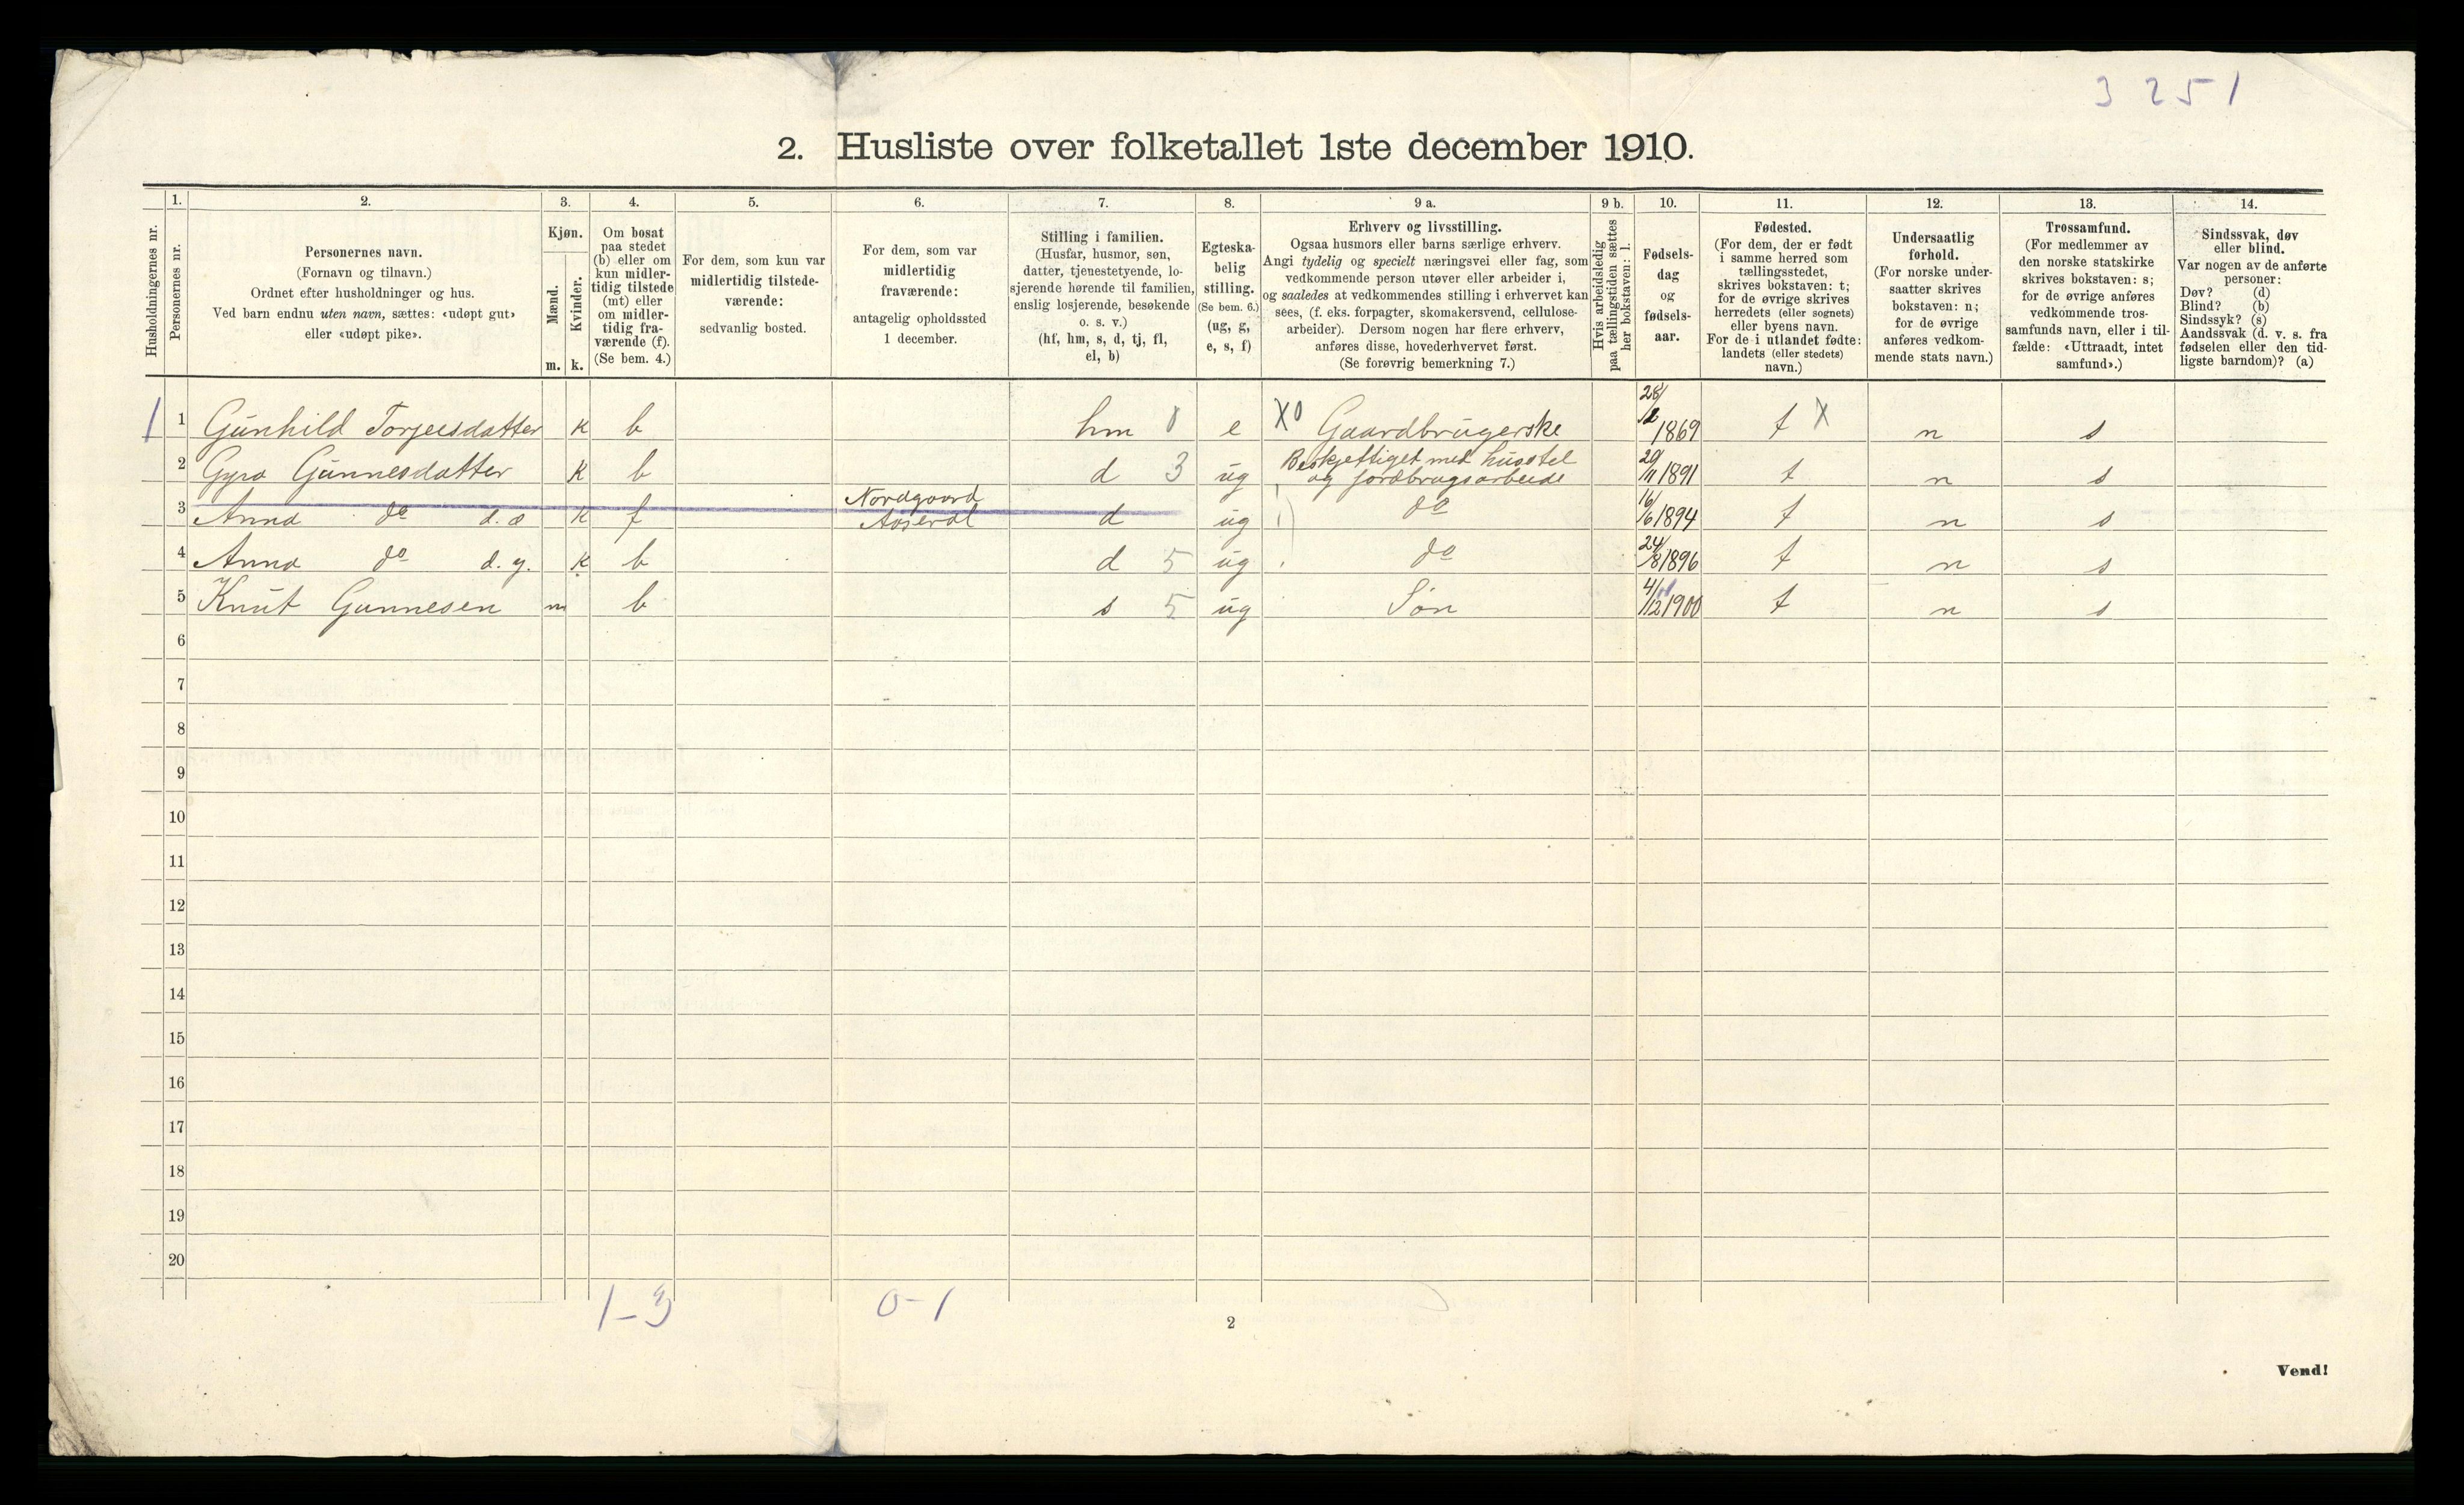 3 2 5 1
2. Husliste over folketallet 1ste december 1910.
Husholdningernes nr.
1.
Personernes nr.
2.
Personernes navn.
(Fornavn og tilnavn.)
Ordnet efter husholdninger og hus.
Ved barn endnu uten navn, sættes: «udøpt gut»
eller «udøpt pike».
3.
Kjøn.
Mænd.
Kvinder.
m. k.
4.
Om bosat
paa stedet
(b) eller om
kun midler-
tidig tilstede
(mt) eller
om midler-
tidig fra-
værende (f).
(Se bem. 4.)
5.
For dem, som kun var
midlertidig tilstede-
værende:
sedvanlig bosted.
6.
For dem, som var
midlertidig
fraværende:
antagelig opholdssted
1 december.
7.
Stilling i familien.
(Husfar, husmor, søn,
datter, tjenestetyende, lo-
sjerende hørende til familien,
enslig losjerende, besøkende
o. s. v.)
(hf, hm, s, d, tj, fl,
el, b)
8.
Egteska-
belig
stilling.
(Se bem. 6.)
(ug, g,
e, s, f)
9 a.
Erhverv og livsstilling.
Ogsaa husmors eller barns særlige erhverv.
Angi tydelig og specielt næringsvei eller fag, som
vedkommende person utøver eller arbeider i,
og saaledes at vedkommendes stilling i erhvervet kan
sees, (f. eks. forpagter, skomakersvend, cellulose-
arbeider). Dersom nogen har flere erhverv,
anføres disse, hovederhvervet først.
(Se forøvrig bemerkning 7.)
9 b.
Hvis arbeidsledig
paa tællingstiden sættes
her bokstaven: l.
10.
Fødsels-
dag
og
fødsels-
aar.
11.
Fødested.
(For dem, der er født
i samme herred som
tællingsstedet,
skrives bokstaven: t;
for de øvrige skrives
herredets (eller sognets)
eller byens navn.
For de i utlandet fødte:
landets (eller stedets)
navn.)
12.
Undersaatlig
forhold.
(For norske under-
saatter skrives
bokstaven: n;
for de øvrige
anføres vedkom-
mende stats navn.)
13.
Trossamfund.
(For medlemmer av
den norske statskirke
skrives bokstaven: s;
for de øvrige anføres
vedkommende tros-
samfunds navn, eller i til-
fælde: «Uttraadt, intet
samfund».)
14.
Sindssvak, døv
eller blind.
Var nogen av de anførte
personer:
Døv? (d)
Blind? (b)
Sindssyk? (s)
Aandssvak (d. v. s. fra
fødselen eller den tid-
ligste barndom)? (a)
1 1 Gunhild Torjeesdatter k b hm 0 e X0 Gaardbrugerske 28/2 1869 t X n s
2 Gyro Gunnesdatter k b d 3 ug Beskjeftiget med husstel
og jordbrugsarbeide 29/11 1891 t n s
3 Anna do d. æ k f Nordgaard
Aaseral d ug do 16/6 1894 t n s
4 Anna do d. y. k b d 5 ug do 24/8 1896 t n s
5 Knut Gunnesen m b s 5 ug Søn 4/12 1900 t n s
6
7
8
9
10
11
12
13
14
15
16
17
18
19
20
1-3 0-1
2
Vend!